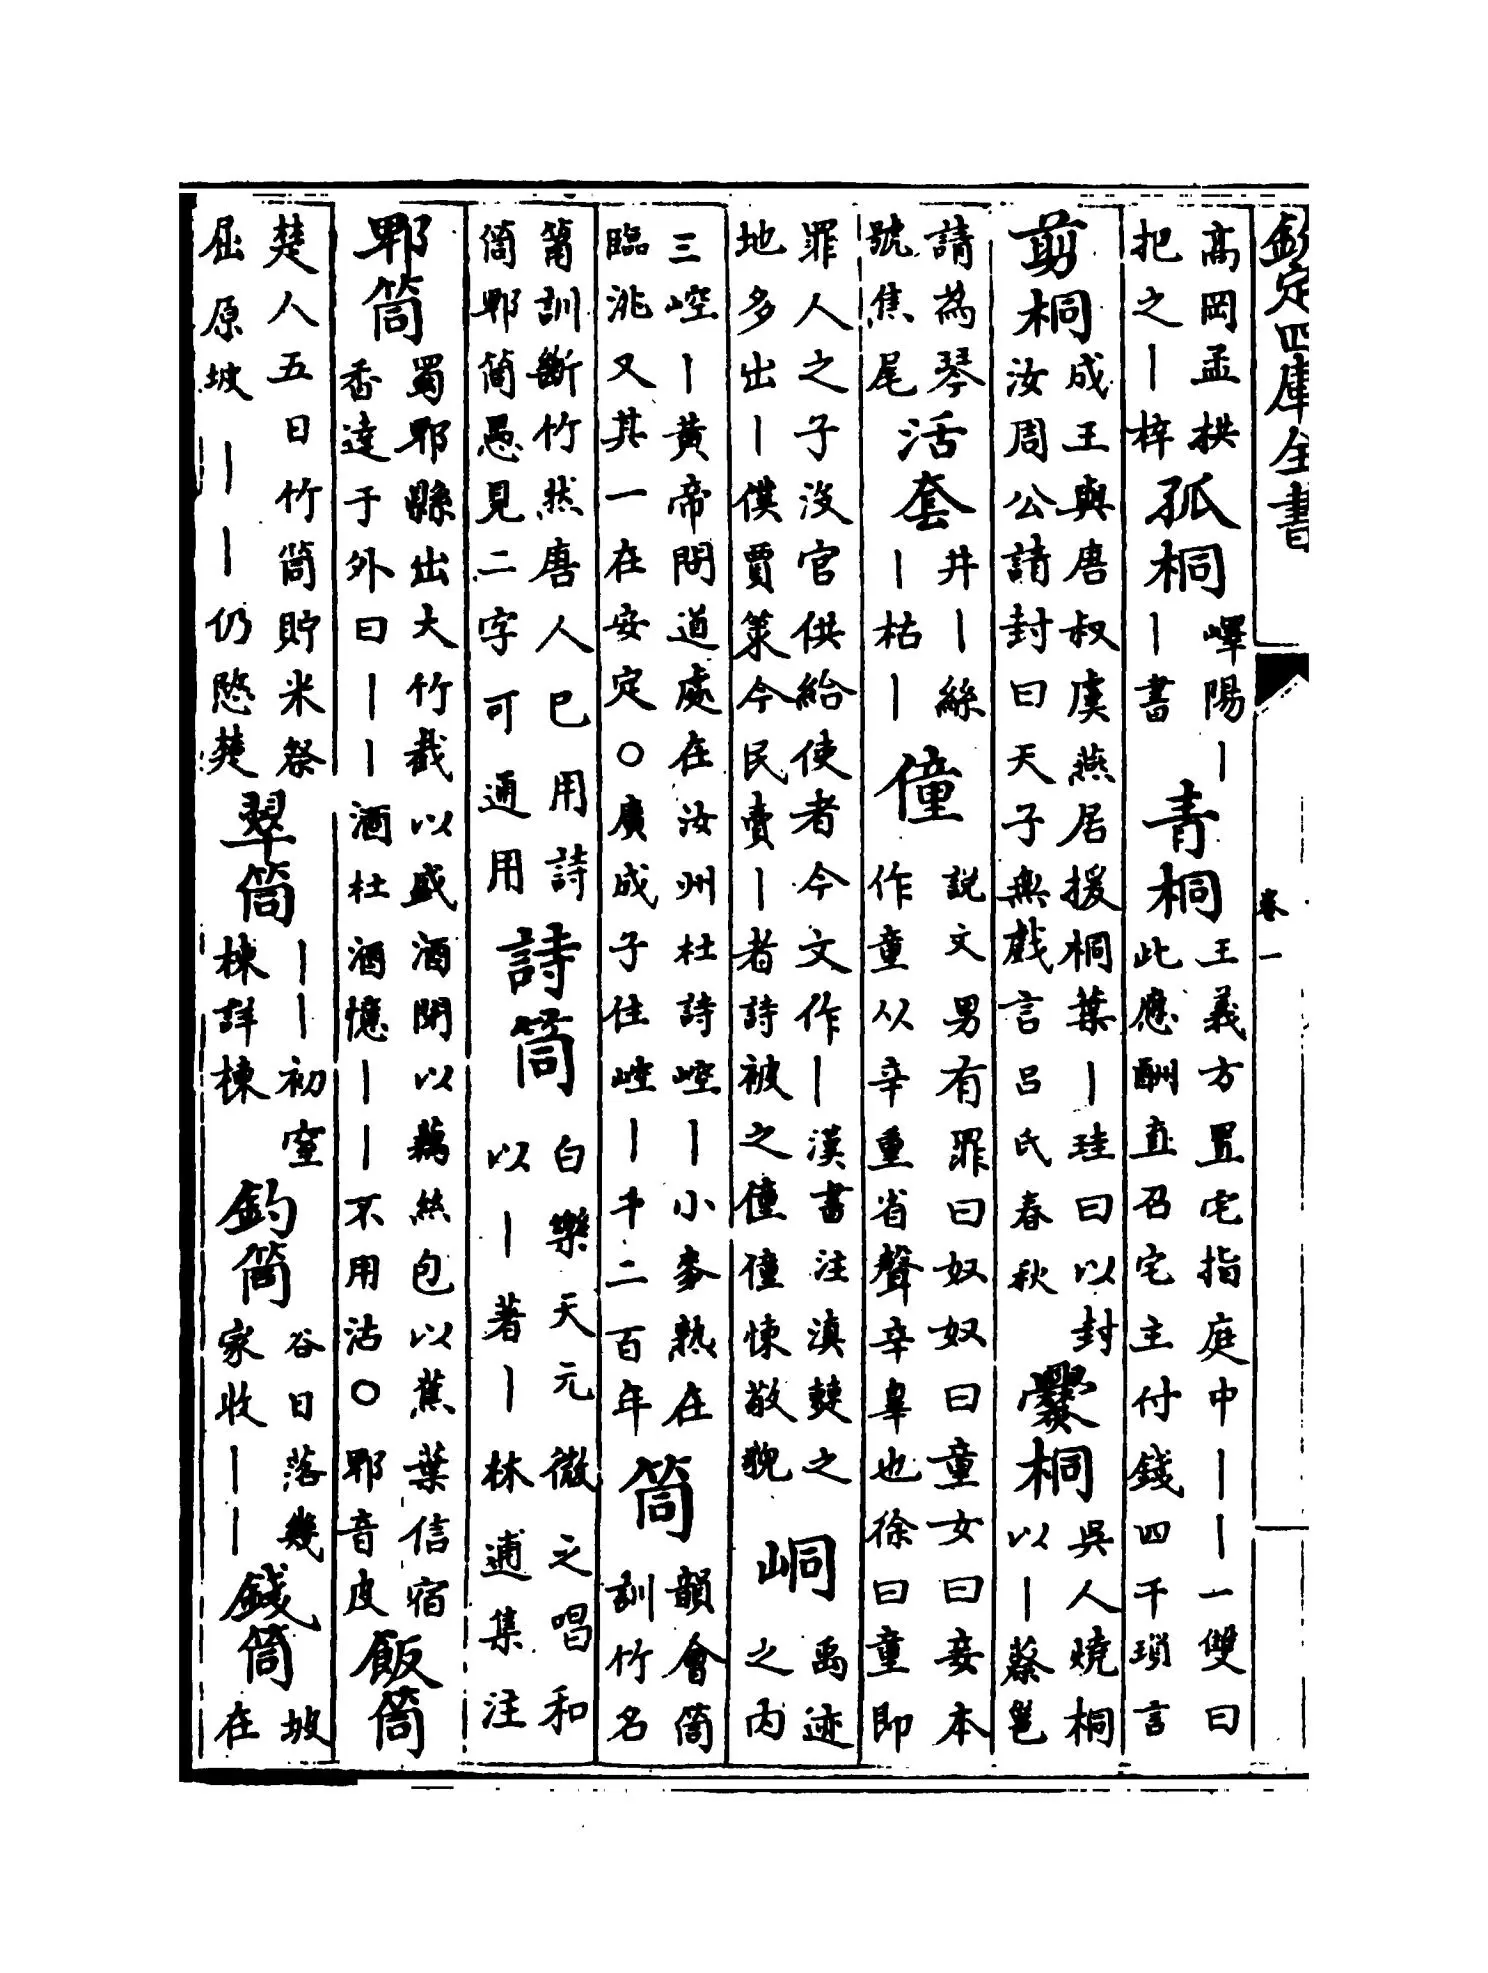 欽定四庫全書
卷一
高岡孟拱把之丨梓孤桐嶧陽丨丨書青桐王義方置宅指庭中丨丨一雙曰此應酬直召宅主付錢四千瑣言
剪桐成王與唐叔虞燕居援桐葉丨珪曰以封汝周公請封曰天子無戲言呂氏春秋爨桐吳人燒桐以丨蔡邕
請為琴號焦尾活套井丨絲丨枯丨僮說文男有罪曰奴奴曰童女曰妾本作童以辛重省聲辛辠也徐曰童即
罪人之子沒官供給使者今文作丨漢書注滇僰之地多出丨僕賈策今民賣丨者詩被之僮僮悚敬貌峒禹迹之内
三崆丨黃帝問道處在汝州杜詩崆丨小麥熟在臨洮又其一在安定〇廣成子住崆丨千二百年筒韻會筩訓竹名
筩訓斷竹然唐人已用詩筩郫筩愚見二字可通用詩筒白樂天元微之唱和以丨著丨林逋集注
郫筒蜀郫縣出大竹截以盛酒閉以藕絲包以蕉葉信宿香達于外曰丨丨酒杜酒憶丨丨不用沽〇郫音皮飯筒
楚人五日竹筒貯米祭屈原坡丨丨仍愍楚翠筒丨丨初窒棟詳棟釣筒谷日落幾家收丨丨錢筒坡在